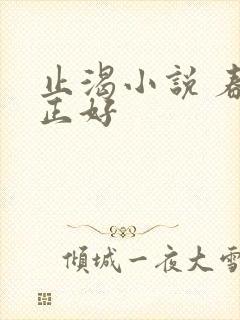 止渴小说 春
正好
倾城一夜大雪